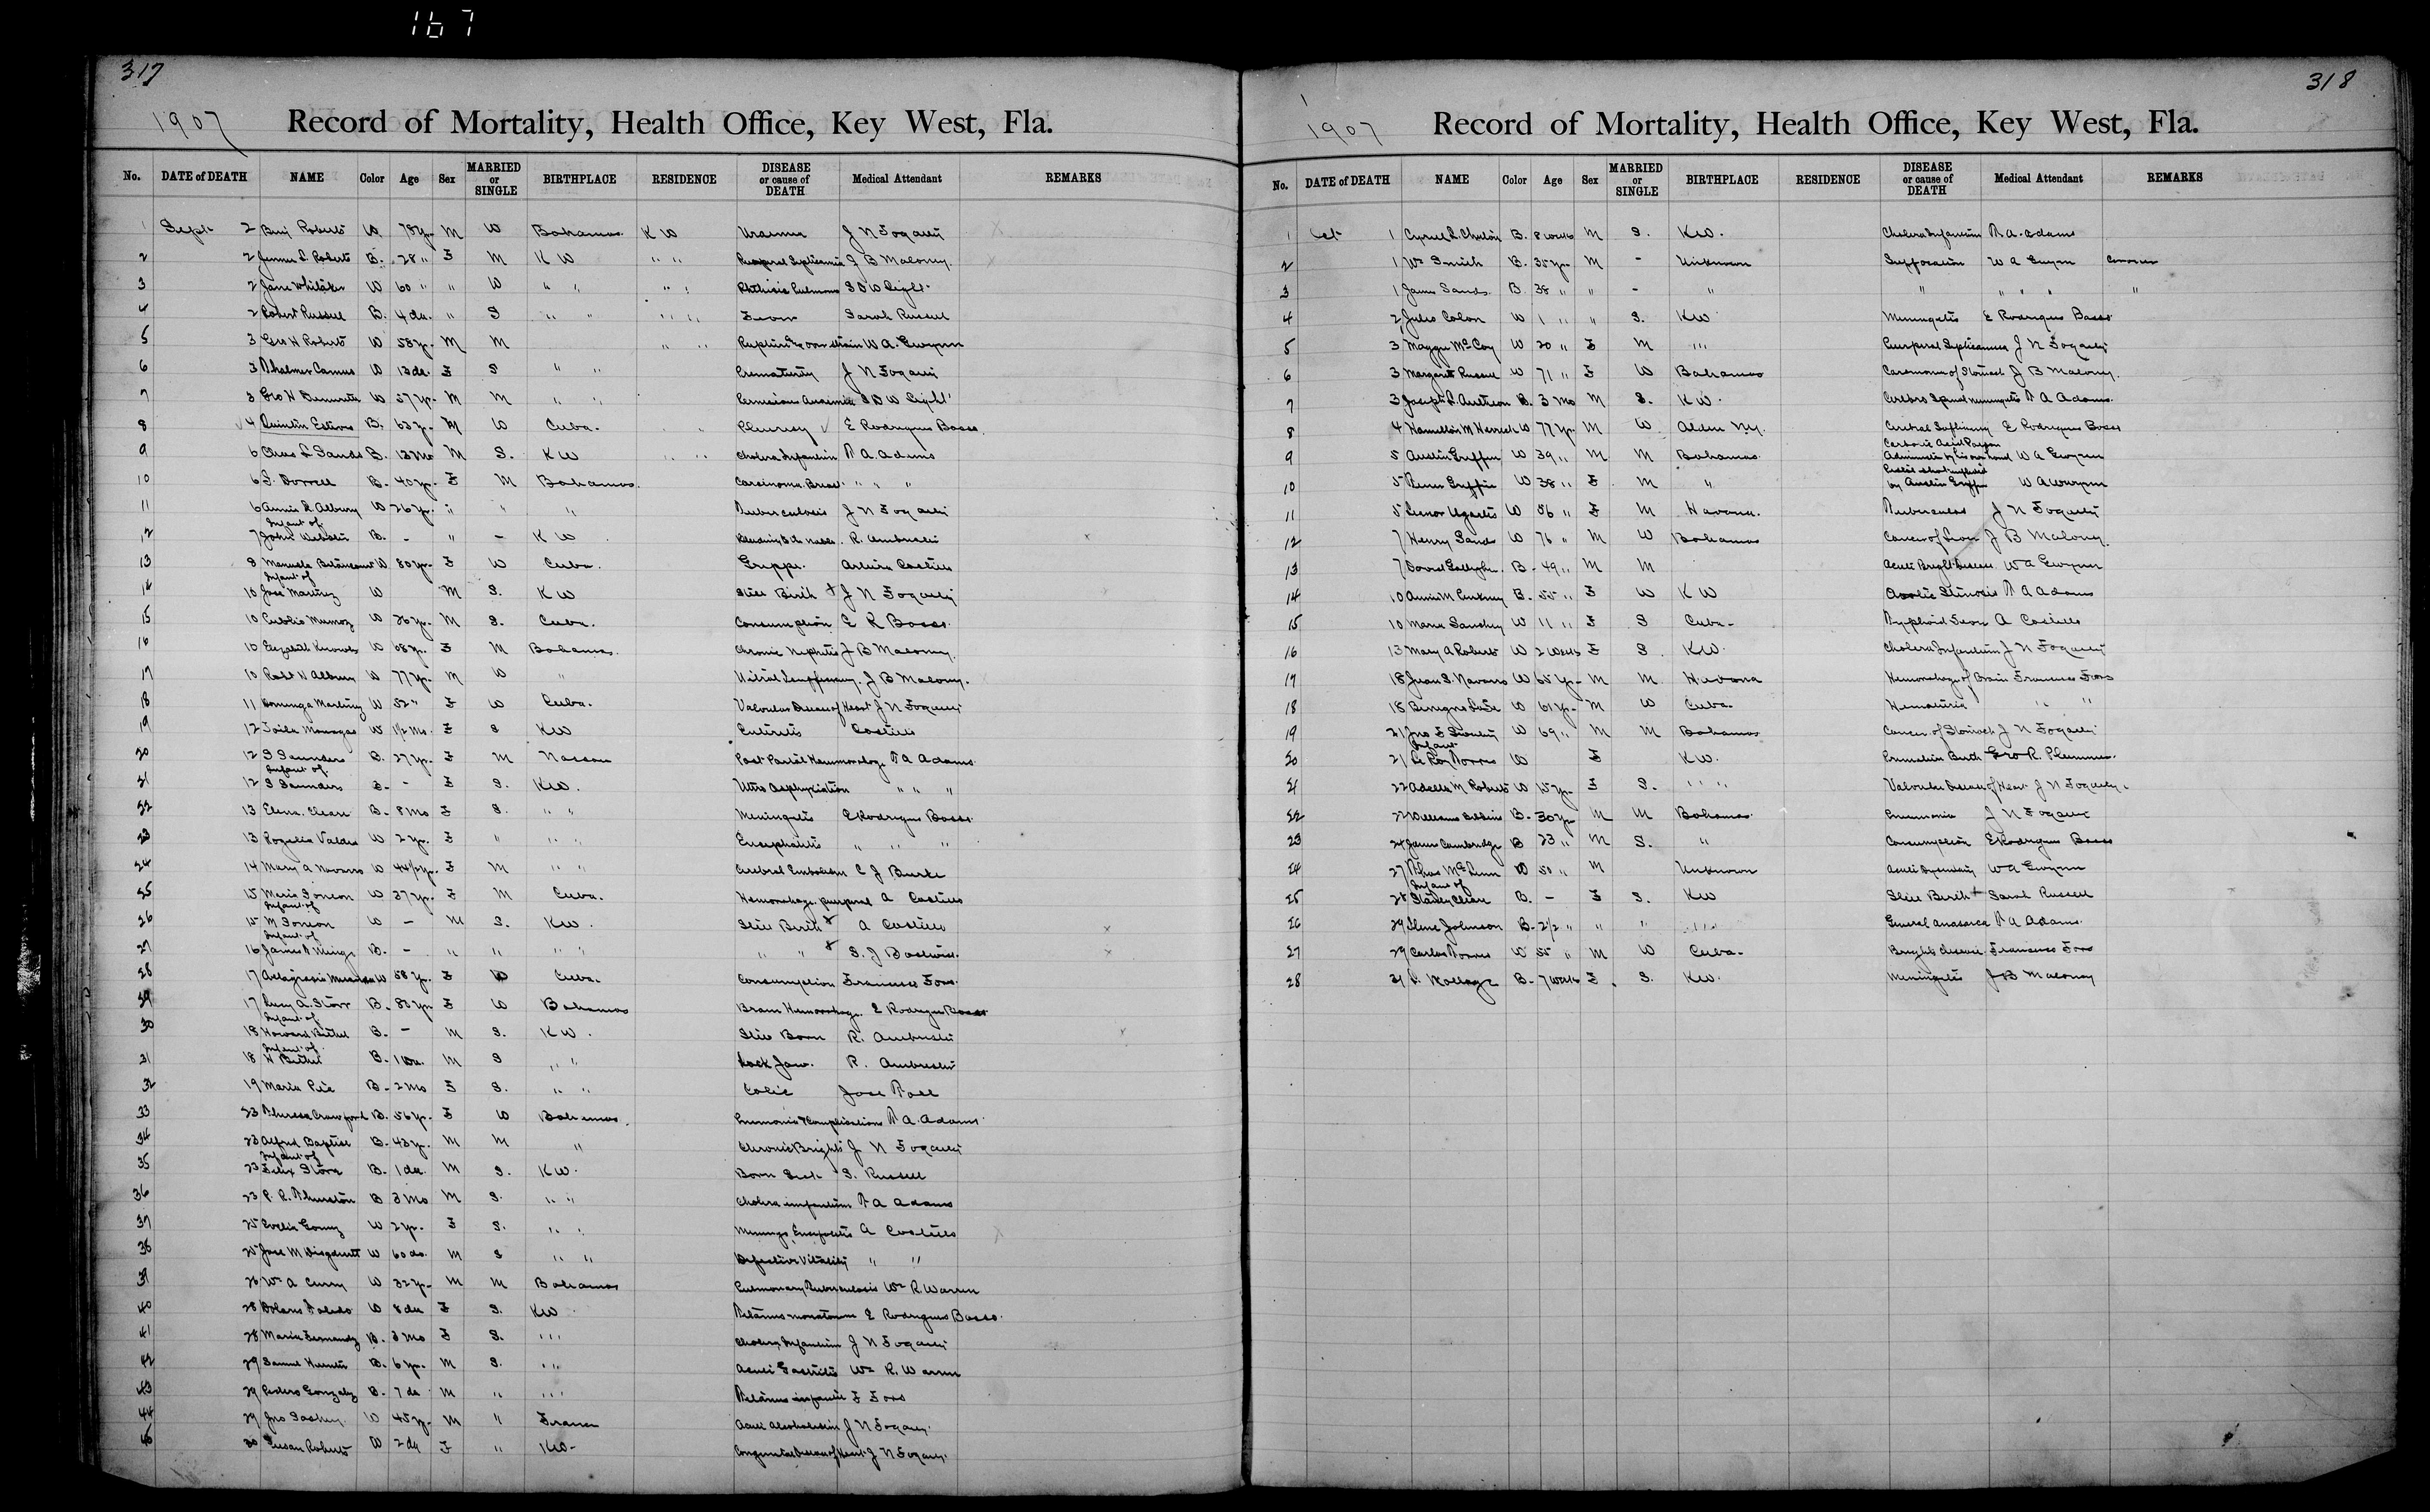 167
317
1907
Record of Mortality, Health Office, Key West, Fla.
No. DATE of DEATH NAME Color Age Sex MARRIED or SINGLE BIRTHPLACE RESIDENCE DISEASE or cause of DEATH Medical Attendant REMARKS
1 Sept 2 Benj Roberts W 78 yr. M W Bahamas K W Uraemia J N Fogarty
2 2 L. Roberts B. 28 " F M K W " " Puerperal Septicemia J B Maloney.
3 2 Jane Whitaker W 60 " " W " " " " Phthisis Pulmons S D W Light.
4 2 Robert Russell B. 4 da. " S " " " " Fever Sarah Russell
5 3 Geo W Roberts W 58 yr. M M " " W A. Gwynn
6 3 Camus W 13 da. F S " " Prematurity J N Fogarty
7 3 Geo W Demeritt W 57 yr. M M " " Pernicious Anaemia S D W Light
8 4 Quintin Esteves B. 63 yr. M W Cuba. Pleurisy E Rodriguez Basso.
9 6 Chas L Sands B. 13 Mo M S. K W " " Cholera Infantum T A. Adams
10 6 S. Dorrell B. 40 yr. F M Bahamas. Carcinoma Breast " " "
11 6 Annie R Albury W 26 yr. " " " Tuberculosis J N Fogarty
12 Infant of 7 John B. - " - K W R.
13 8 Manuela Betancourt W 80 yr. F W Cuba. Grippe. Arturo Castillo
14 Infant of 10 Jose Martinez W M S. K W Still Birth + J N Fogarty
15 10 Publio Munoz W 26 yr. M S. Cuba. Consumption E R Basso.
16 10 Elizabeth Knowles W 68 yr. F M Bahamas. Chronic Nephritis J B Maloney.
17 10 Robt W Albury W 77 yr. M W " J B Maloney.
18 11 Dominga Martinez W 52 " F W Cuba. Valvular Disease of Heart J N Fogarty
19 12 Monagas W 1/2 Mo. F S K W Enteritis Castillo
20 12 S Saunders B. 27 yr. F M Nassau Post Partal Hemmorhage T A Adams
21 Infant of 12 S Saunders B. - F S. K W. Utro Asphyxiation " " "
22 13 Elena. B. 8 Mo F S. " " Meningitis E Rodriguez Basso.
23 13 Rogelia Valdes W 2 yr. F " " " Encephalitis " " "
24 14 Mary A Navarro W yr. F M " " Cerebral Embolism C J Burke
25 15 Maria W 37 yr. F M Cuba. Hemorrhage puerperal A Castillo
26 Infant of 15 M W - M S. K W. Still Birth A Castillo
27 Infant of 16 James B. - " " " " " " S. J
28 17 W 58 yr. F W Cuba. Consumption Francisco Fors.
29 17 Lucy A. Storr B. 82 yr F W Bahamas Brain Hemorrhage. E Rodriguez Basso
30 Infant of 18 Howard Bethel B. - M S. K W. Still Born R.
31 Infant of 18 H Bethel B. 1 da. M S " " Lock Jaw. R.
32 19 Maria B. 2 Mo F S. " " Colic Jose
33 23 Theresa Crawford B. 56 yr. F W Bahamas. Pneumonia & Complications T A. Adams
34 23 Alfred Baptise B. 43 yr. M M " Chronic Brights J N Fogarty
35 Infant of 23 Felix B. 1 da. M S. K W. Born Sick S. Russell
36 23 P. R. Thurston B 3 Mo M S. " " Cholera infantum T A Adams
37 25 Evelia Gomez W 2 yr. F S. " " A Castillo
38 25 Jose M W 60 da. M S " " Defective Vitality " "
39 26 Wm A Curry W 32 yr. M M Bahamas Pulmonary Tuberculosis Wm R Warren
40 28 Dolores Toledo W 8 da F S. K W Tetanus E Rodriguez Basso.
41 28 Maria Fernandez B. 3 Mo F S. " " Cholera Infantum J N Fogarty
42 29 Samuel B. 6 yr. M S. " " Acute Gastritis Wm R. Warren
43 29 Pedro Gonzalez B. 7 da M " " " Tetanus infantile F Fors
44 29 Jno W 45 yr. M " France Acute Alcoholism J N Fogarty
45 30 Susan Roberts W 2 da F " K W- Disease of Heart J N Fogarty
318
1907
Record of Mortality, Health Office, Key West, Fla.
No. DATE of DEATH NAME Color Age Sex MARRIED or SINGLE BIRTHPLACE RESIDENCE DISEASE or cause of DEATH Medical Attendant REMARKS
1 Oct 1 Cyrul B. 8 weeks M S. K W. Cholera Infantum T A. Adams
2 1 Wm Smith B. 35 yr M - Unknown Suffocation W A Gwynn Coroner
3 1 James Sands B. 38 " " - " " " " " "
4 2 Julio Colon W 1 " " S. K W Meningitis E Rodriguez Basso
5 3 Maggie McCoy W 20 " F M " " Puerperal Septicemia J N Fogarty
6 3 Margaret Russell W 71 " F W Bahamas Carcinoma of Stomach J B Maloney.
7 3 Joseph B. 3 Mo M S. K W. Cerebro Spinal meningitis T A Adams.
8 4 Hamilton M W 77 yr. M W E Rodriguez Basso
9 5 Austin Griffin W 39 " M M Bahamas Carbolic Acid Poison Administered by his own hand W A Gwynn
10 5 Griffin W 38 " F M " Pistol shot inflicted by Austin Griffin W A Gwynn
11 5 Leonor Ugartes W 56 " F M Havana. Tuberculosis J N Fogarty
12 7 Henry Sands W 76 " M W Bahamas Cancer of Liver J B Maloney.
13 7 David B. 49 " M M Acute Brights Disease W A Gwynn
14 10 Annie M Pinkney B. 55 " F W K W Aortic Stenosis T A Adams
15 10 Maria Sanchez W 11 " F S Cuba- Typhoid Fever A Castillo
16 13 Mary A Roberts W 2 Weeks F S K W. Cholera Infantum J N Fogarty
17 18 Juan S. Navarro W 65 yr. M M Havana Hemorrhage of Brain Francisco Fors
18 18 Benigno W 61 yr. M W Cuba- Hematuria " "
19 21 Jno F W 69 " M M Bahamas Cancer of Stomach J N Fogarty
20 Infant 21 Le Roy Torres W F K W. Premature Birth Geo R. Plummer.
21 22 Adella M Roberts W 15 yr F S. " " Valvular Disease of Heart J N Fogarty.
22 22 William B. 30 yr M M Bahamas Pneumonia J N Fogarty
23 24 James Cambridge B 23 " M S. " Consumption E Rodriguez Basso
24 27 Thos W 50 " M Unknown Acute Dysentery W A Gwynn
25 Infant of 28 B. - F S. K W Still Birth + Sarah Russell
26 29 Johnson B- 2 1/2 " " " " " General Anasarca T A Adams.
27 29 Carlos Torres W 55 " M W Cuba- Brights disease Francisco Fors
28 31 B- 7 weeks F S. K W. Meningitis J B Maloney